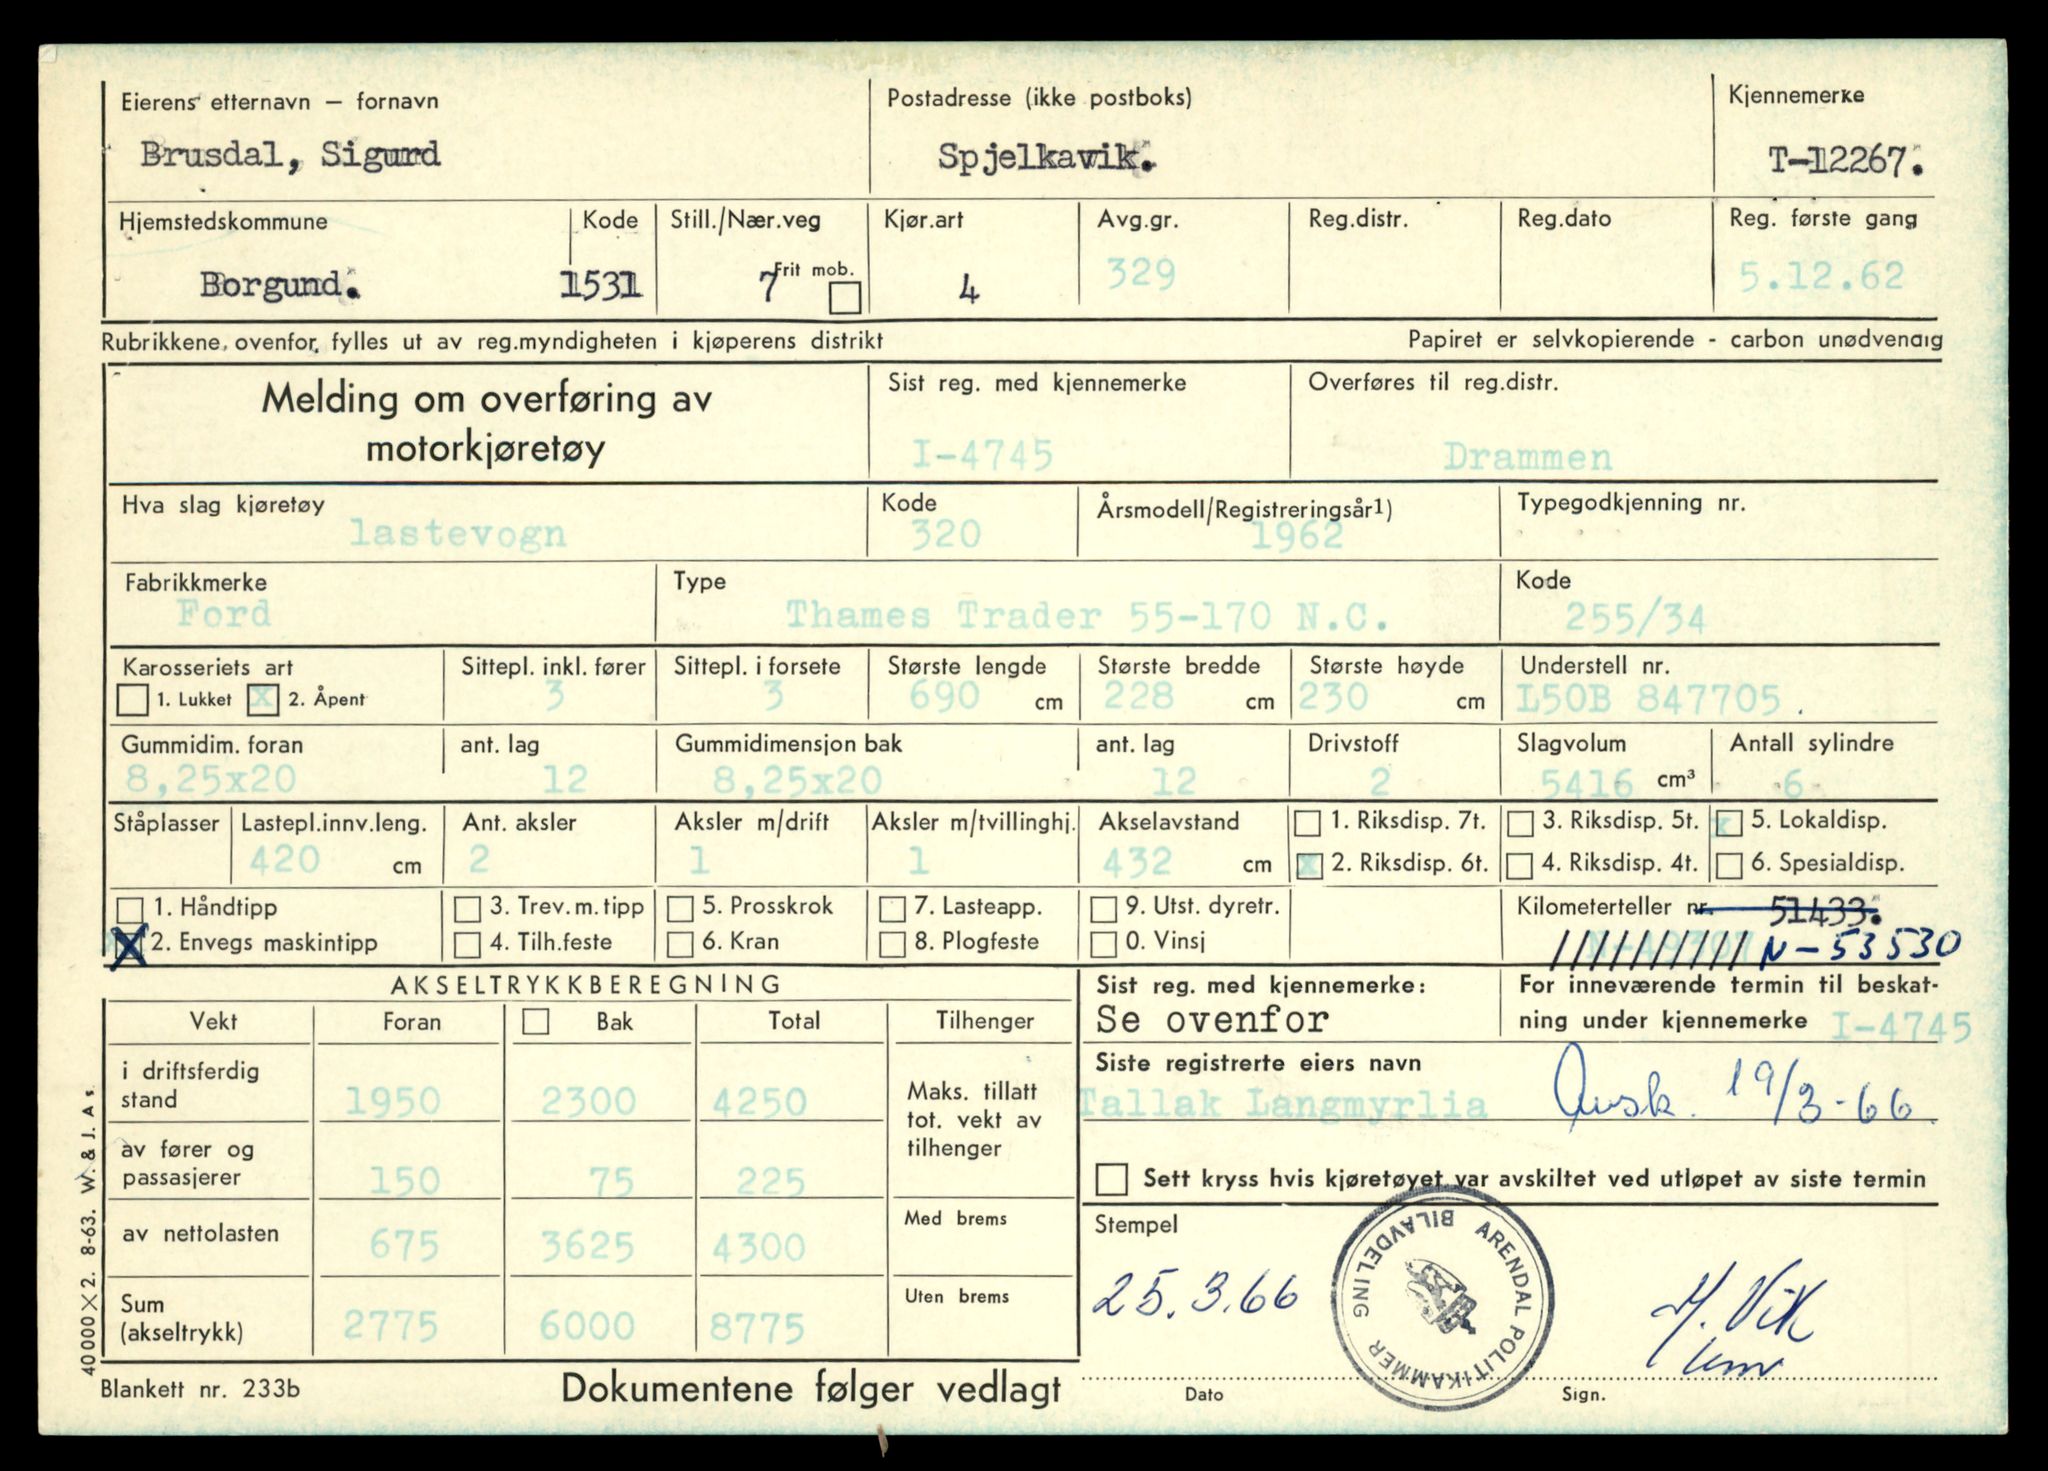 Eierens etternavn – fornavn
Postadresse (ikke postboks)
Kjennemerke
Brusdal, Sigurd
Spjelkavik.
T-12267.
Hjemstedskommune
Kode
Still./Nær.veg
Kjør.art
Avg.gr.
Reg.distr.
Reg.dato
Reg. første gang
Borgund.
1531
7
Frit mob.
4
329
5.12.62
Rubrikkene ovenfor fylles ut av reg.myndigheten i kjøperens distrikt
Papiret er selvkopierende - carbon unødvendig
Melding om overføring av
motorkjøretøy
Sist reg. med kjennemerke
Overføres til reg.distr.
I-4745
Drammen
Hva slag kjøretøy
Kode
Årsmodell/Registreringsår1)
Typegodkjenning nr.
lastevogn
320
1962
Fabrikkmerke
Type
Kode
Ford
Thames Trader 55-170 N.C.
255/34
Karosseriets art
Sittepl. inkl. fører
Sittepl. i forsete
Største lengde
Største bredde
Største høyde
Understell nr.
1. Lukket
x 2. Åpent
3
3
690 cm
228 cm
230 cm
L50B 847705.
Gummidim. foran
ant. lag
Gummidimensjon bak
ant. lag
Drivstoff
Slagvolum
Antall sylindre
8,25x20
12
8,25x20
12
2
5416 cm³
6
Ståplasser
Lastepl.innv.leng.
Ant. aksler
Aksler m/drift
Aksler m/tvillinghj.
Akselavstand
1. Riksdisp. 7t.
3. Riksdisp. 5t.
x 5. Lokaldisp.
420 cm
2
1
1
432 cm
x 2. Riksdisp. 6t.
4. Riksdisp. 4t.
6. Spesialdisp.
1. Håndtipp
3. Trev. m. tipp
5. Prosskrok
7. Lasteapp.
9. Utst. dyretr.
Kilometerteller nr.
51433.
X 2. Envegs maskintipp
4. Tilh.feste
6. Kran
8. Plogfeste
0. Vinsj
N-53530
AKSELTRYKKBEREGNING
Sist reg. med kjennemerke:
For inneværende termin til beskat-
Vekt
Foran
Bak
Total
Tilhenger
Se ovenfor
ning under kjennemerke I-4745
i driftsferdig
stand
1950
2300
4250
Maks. tillatt
tot. vekt av
tilhenger
Siste registrerte eiers navn
Tallak Langmyrlia
Avsk. 19/3-66.
av fører og
passasjerer
150
75
225
Sett kryss hvis kjøretøyet var avskiltet ved utløpet av siste termin
av nettolasten
675
3625
4300
Med brems
Stempel
25.3.66
ARENDAL POLITIKAMMER
BILAVDELING
Sum
(akseltrykk)
2775
6000
8775
Uten brems
Vik
Blankett nr. 233b
Dokumentene følger vedlagt
Dato
Sign.
40000 X 2. 8-63. W. & J. A s.